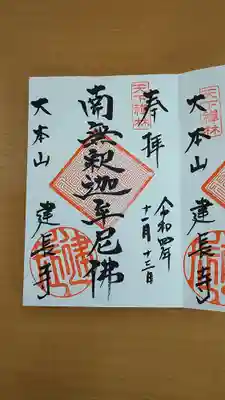 天下禅林
奉拝
令和四年
十一月十三日
南無釈迦牟尼佛
大本山
建長寺
天下禅林
大本山
建長寺